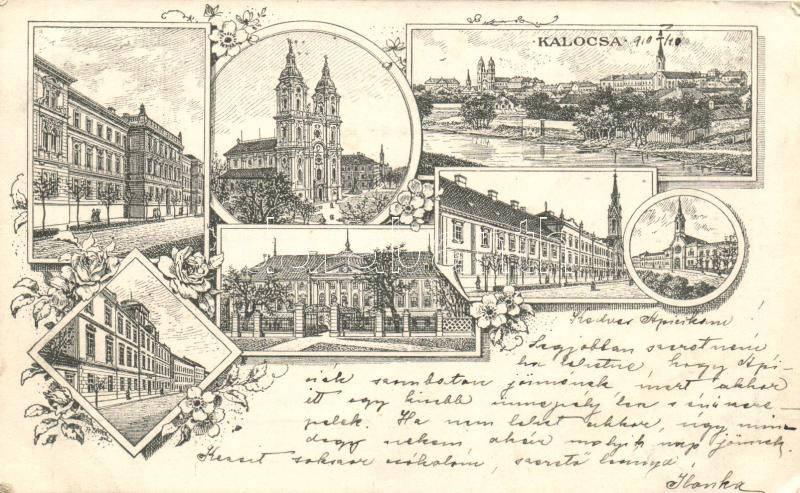 KALOCSA. 910 /10
Kedves Apicikám!
Legjobban szeretném
ha lehetne hogy Api-
ciék szombaton jönnének mert akkor
itt egy kisebb ünnepély lesz s én is szere-
pelek. Ha nem lehet akkor, úgy min-
degy nekem akár melyik nap jönnek.
Kezeit sokszor csókolom, szerető leánya,
Ilonka